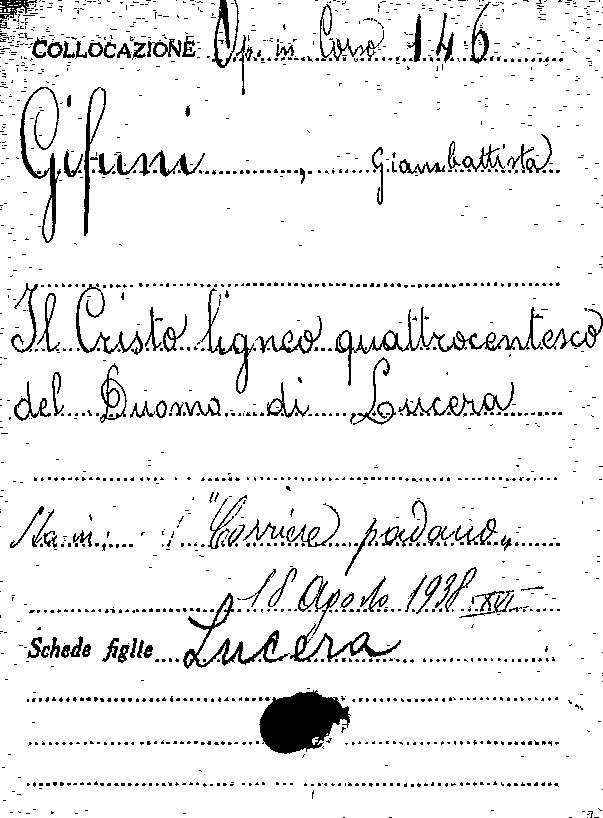 COLLOCAZIONE Op. in Corso 146
Gifuni, Giambattista
Il Cristo ligneo quattrocentesco
del Duomo di Lucera
Sta in: "Corriere padano„
18 Agosto 1938 XVI
Schede figlie Lucera